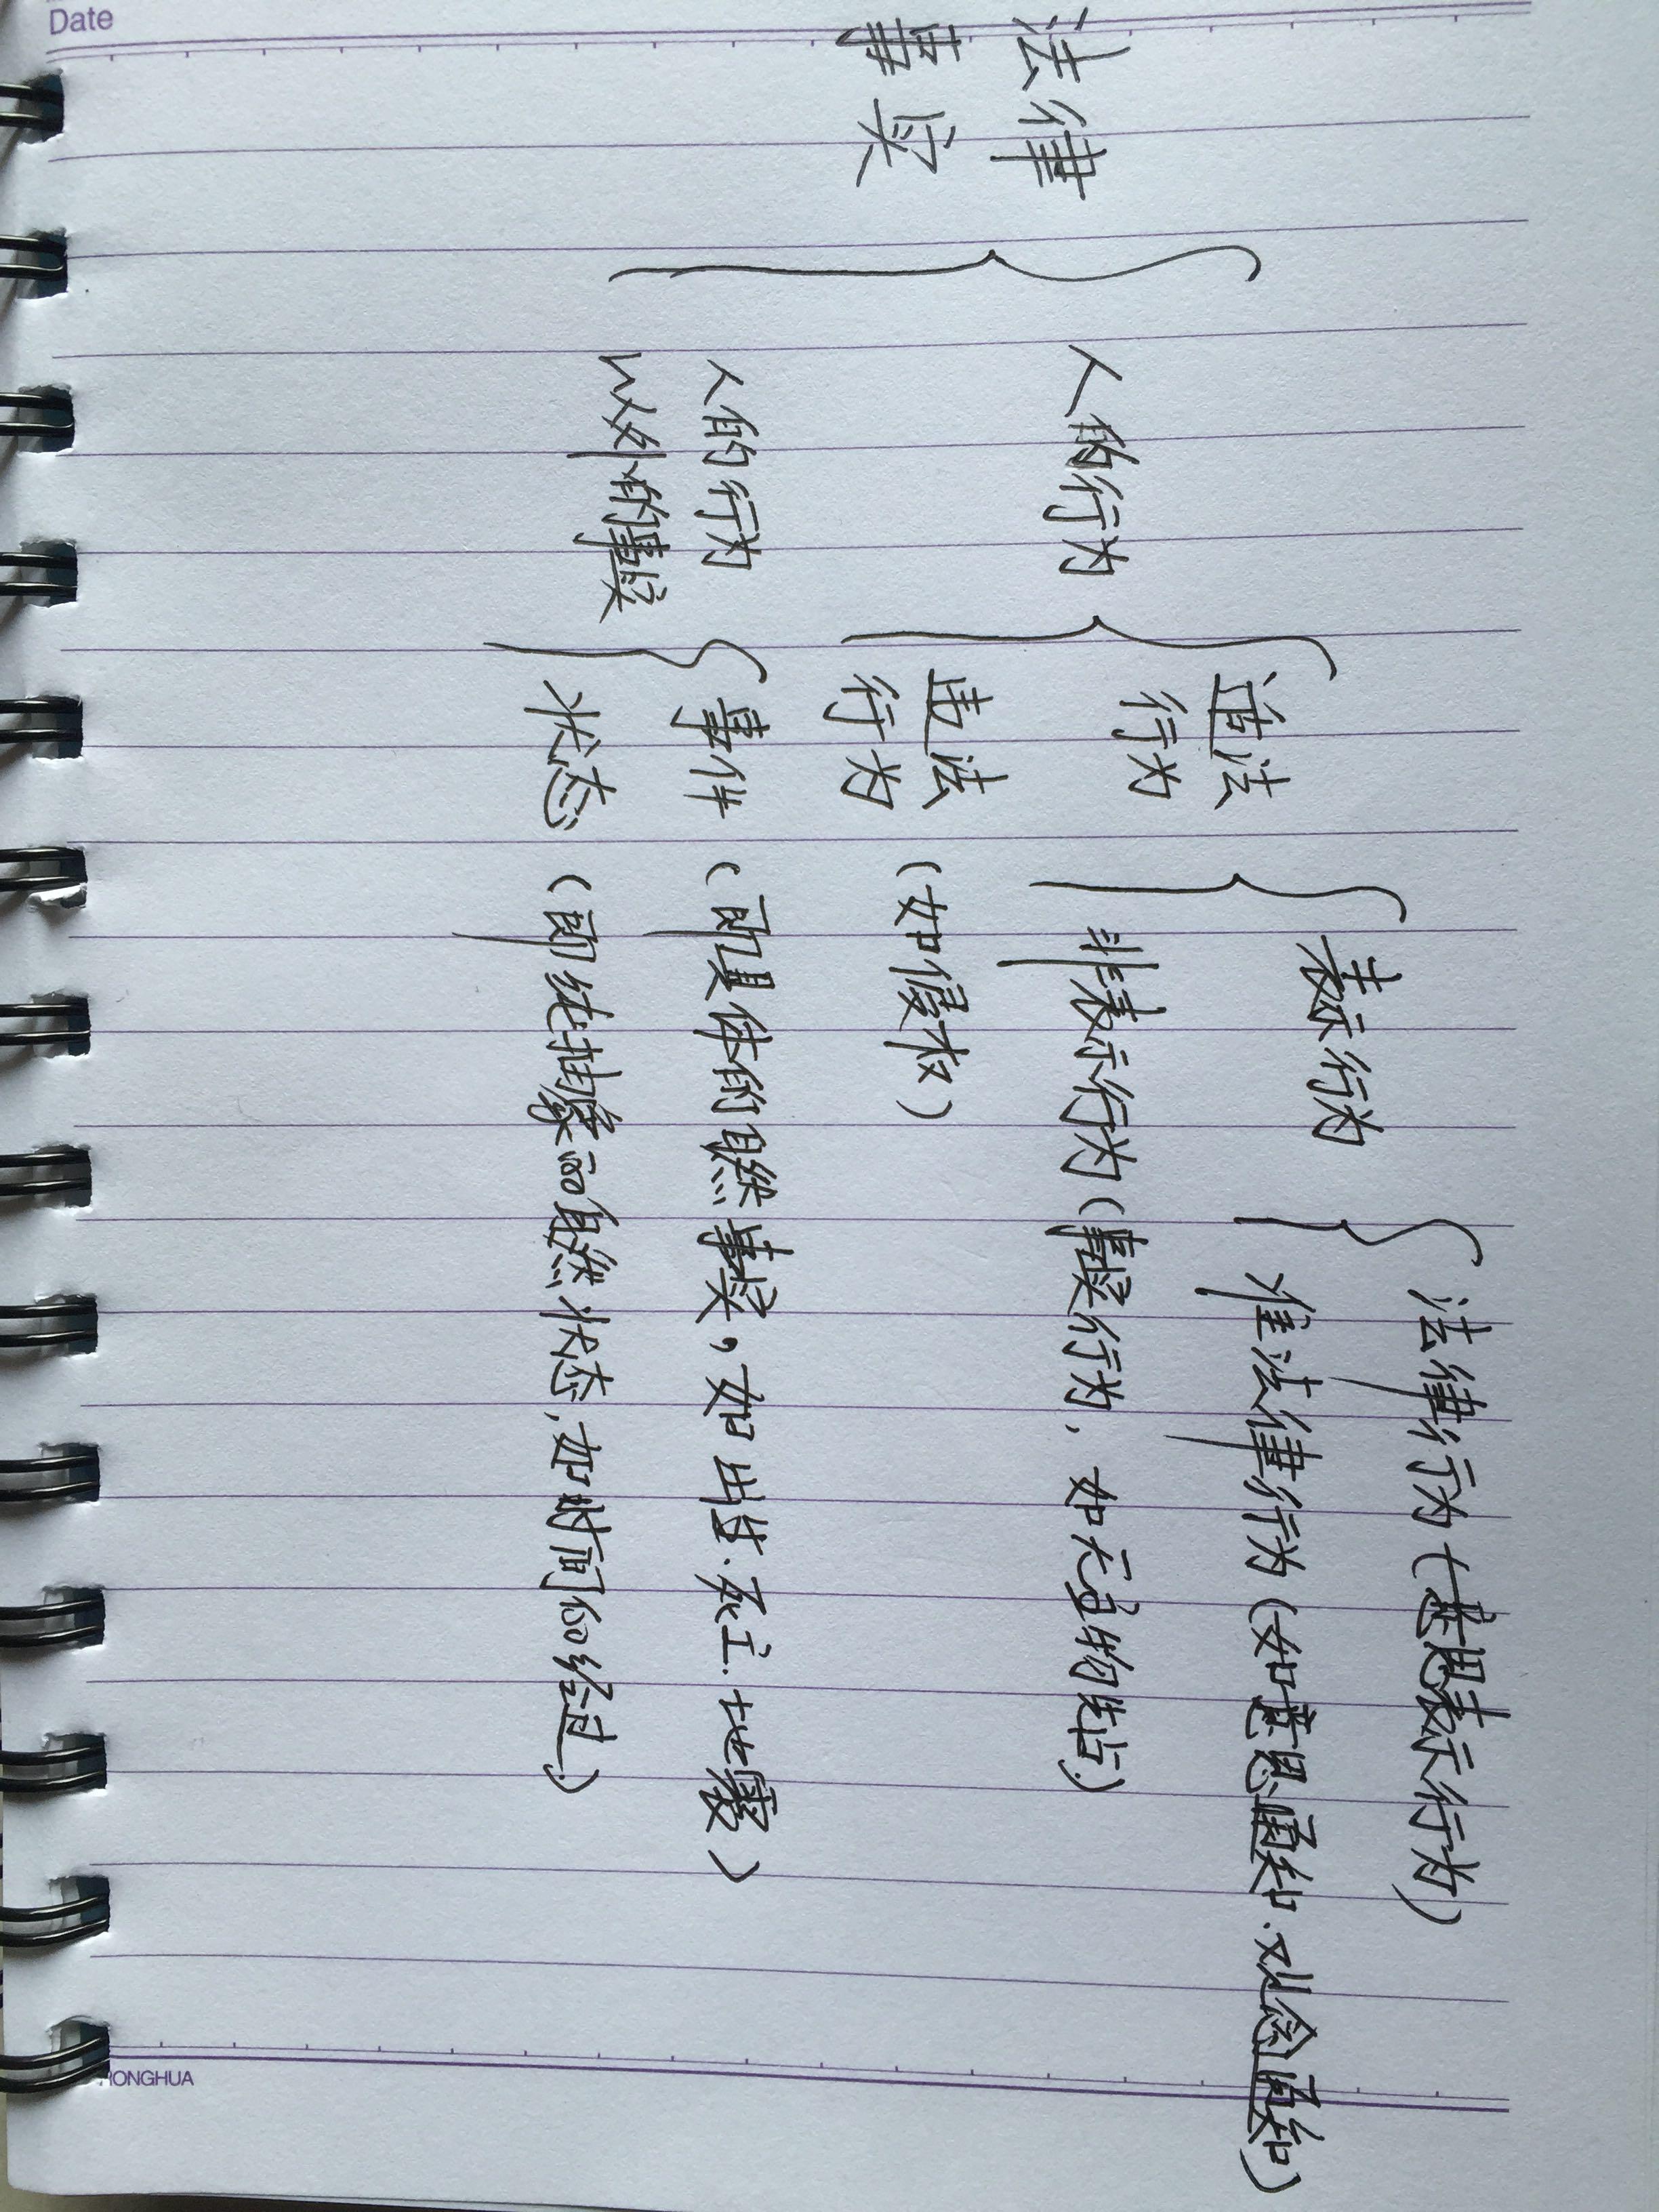 法律行为(意思表示行为)
表示行为
准法律行为(如意思通知、观念通知)
适法
行为
非表示行为(事实行为,如无主物先占)
人的行为
法律
事实
违法
行为
(如侵权)
人的行为
以外的事实
事件(即具体的自然事实,如出生、死亡、地震)
状态(即纯抽像的自然状态,如时间的经过)
Date
HONGHUA